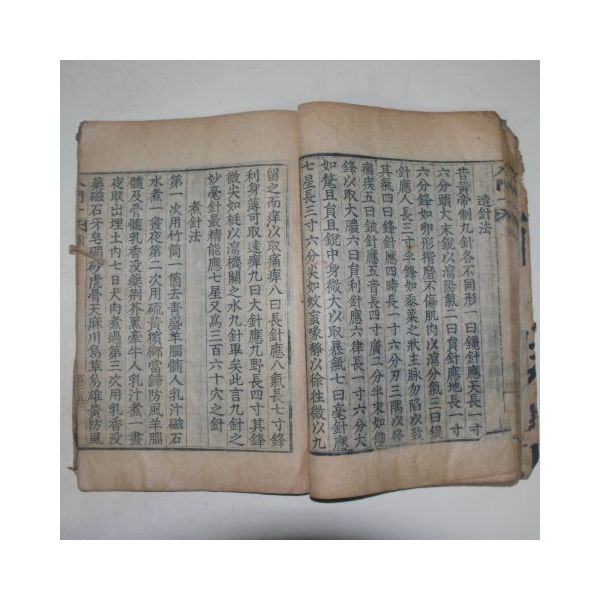 造針法
昔黃帝制九針各不同形一曰鑱針應天長一寸
六分頭大末銳以瀉陽氣二曰員針應地長一寸
六分鋒如卵形揩磨不傷肌肉以瀉分氣三曰鍉
針應人長三寸半鋒如黍粟之狀主脉勿陷以致
其氣四曰鋒針應四時長一寸六分刃三隅以發
痼疾五曰鈹針應五音長四寸廣二分半末如劍
鋒以取大膿六曰員利針應六律長一寸六分大
如氂且員且銳中身微大以取暴氣七曰毫針應
七星長三寸六分尖如蚊蝱喙靜以徐往微以久
留之而痺以取痛痺八曰長針應八氣長七寸鋒
利身薄可取遠痺九曰大針應九野長四寸其鋒
微尖如梃以瀉機關之水九針畢矣此言九針之
妙毫針最精能應七星又爲三百六十穴之針
煮針法
第一次用竹筒一箇去青盛羊腦髓人乳汁磁石
水煮一晝夜第二次用硫黃檳榔當歸防風羊腦
髓及骨髓乳香没藥荊芥黑牽牛人乳汁煮一晝
夜取出埋土內七日犬肉煮過第三次用乳香没
藥磁石牙皂硇砂虎骨天麻川烏草烏雄黃防風